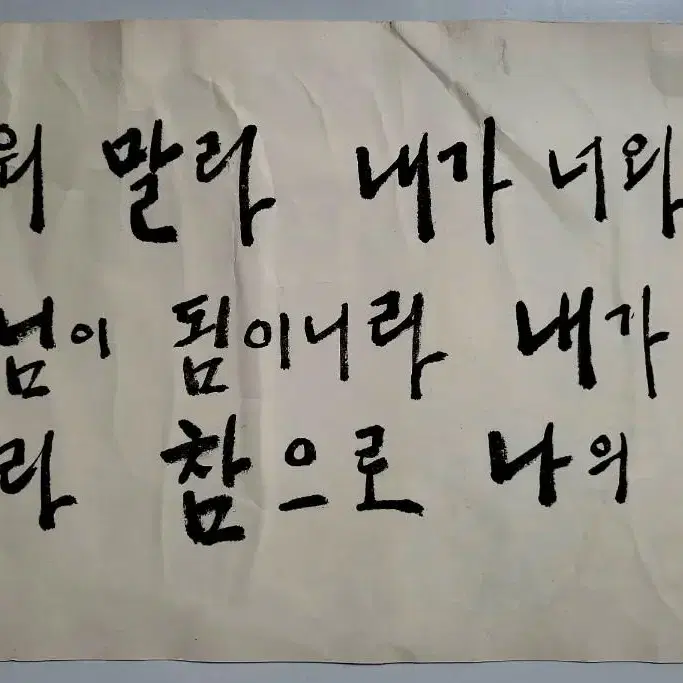 워 말라 내가 너와
님이 됨이니라 내가
라 참으로 나의